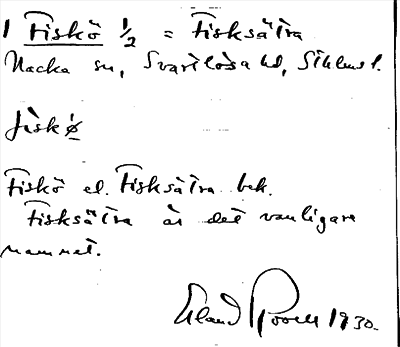 1 Fiskö 1/2 = Fisksätra
Nacka sn, Svartlösa hd, Sthlms l.
fiskø
Fiskö el. Fisksätra bek.
Fisksätra är det vanligare
namnet.
Erland Rosell 1930.